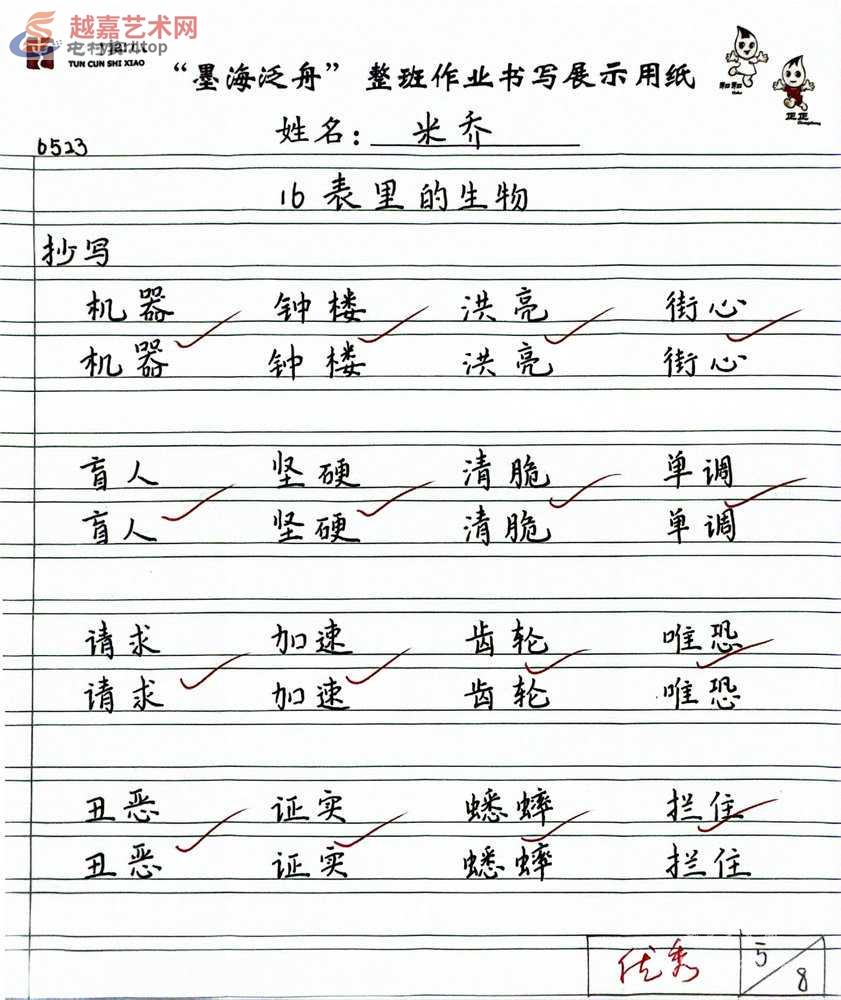 越嘉艺术网
TUN CUN SHI XIAO
“墨海泛舟” 整班作业书写展示用纸
和和
正正
姓名: 米乔
6523
16 表里的生物
抄写
机器 钟楼 洪亮 街心
机器 钟楼 洪亮 街心
盲人 坚硬 清脆 单调
盲人 坚硬 清脆 单调
请求 加速 齿轮 唯恐
请求 加速 齿轮 唯恐
丑恶 证实 蟋蟀 拦住
丑恶 证实 蟋蟀 拦住
优秀 5/8